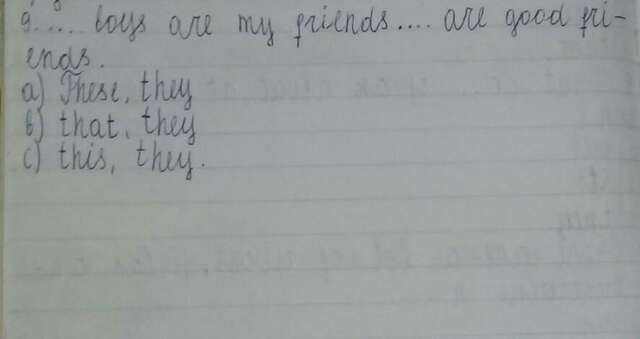 9.... boys are my friends.... are good fri-
ends.
a) These, they
b) that, they
c) this, they.